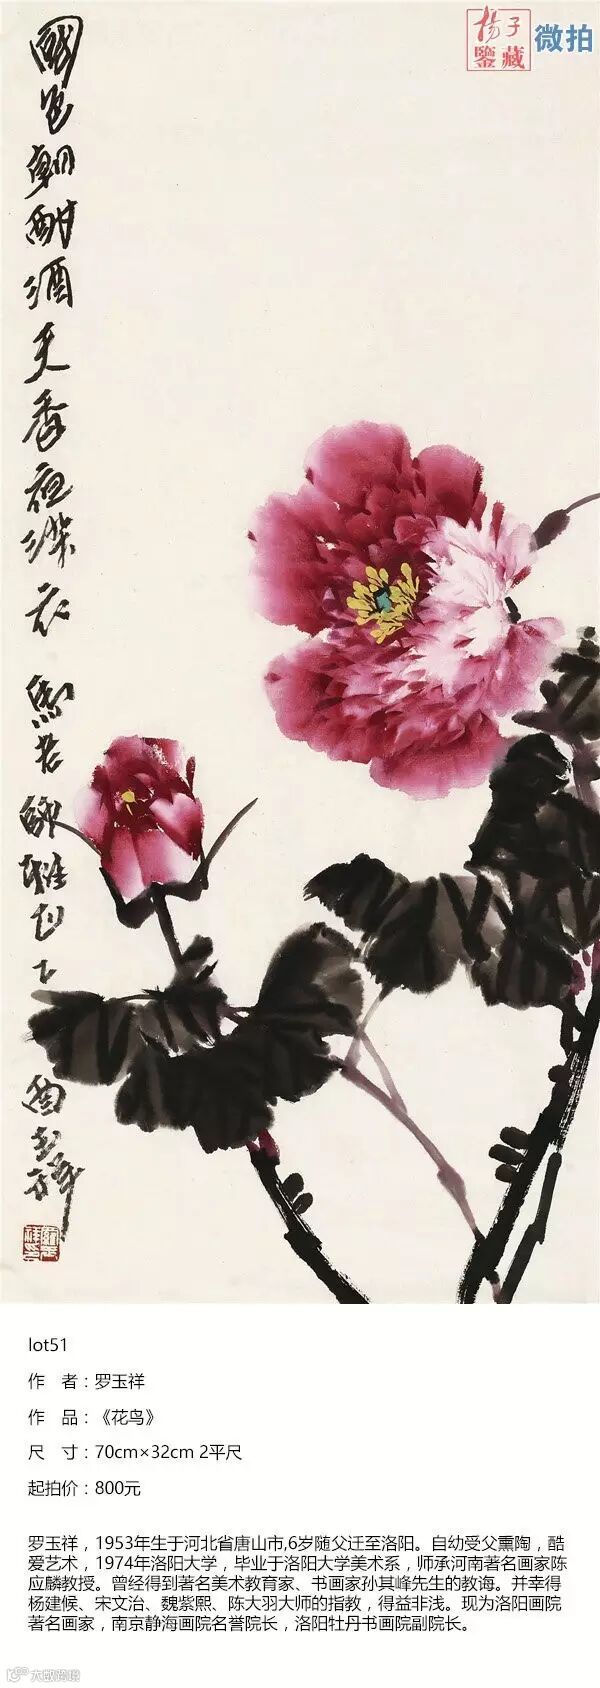 揚子
鑒藏
微拍
國色朝酣酒天香夜染衣
馬老師雅正
罗玉祥
lot51
作 者：罗玉祥
作 品：《花鸟》
尺 寸：70cm×32cm 2平尺
起拍价：800元
罗玉祥，1953年生于河北省唐山市,6岁随父迁至洛阳。自幼受父熏陶，酷
爱艺术，1974年洛阳大学，毕业于洛阳大学美术系，师承河南著名画家陈
应麟教授。曾经得到著名美术教育家、书画家孙其峰先生的教诲。并幸得
杨建候、宋文治、魏紫熙、陈大羽大师的指教，得益非浅。现为洛阳画院
著名画家，南京静海画院名誉院长，洛阳牡丹书画院副院长。
大数跨境